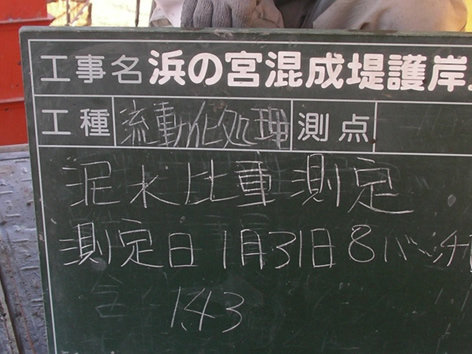 工事名 浜の宮混成堤護岸
工種 流動化処理 測点
泥水比重測定
測定日 1月31日 8バッチ
1.43